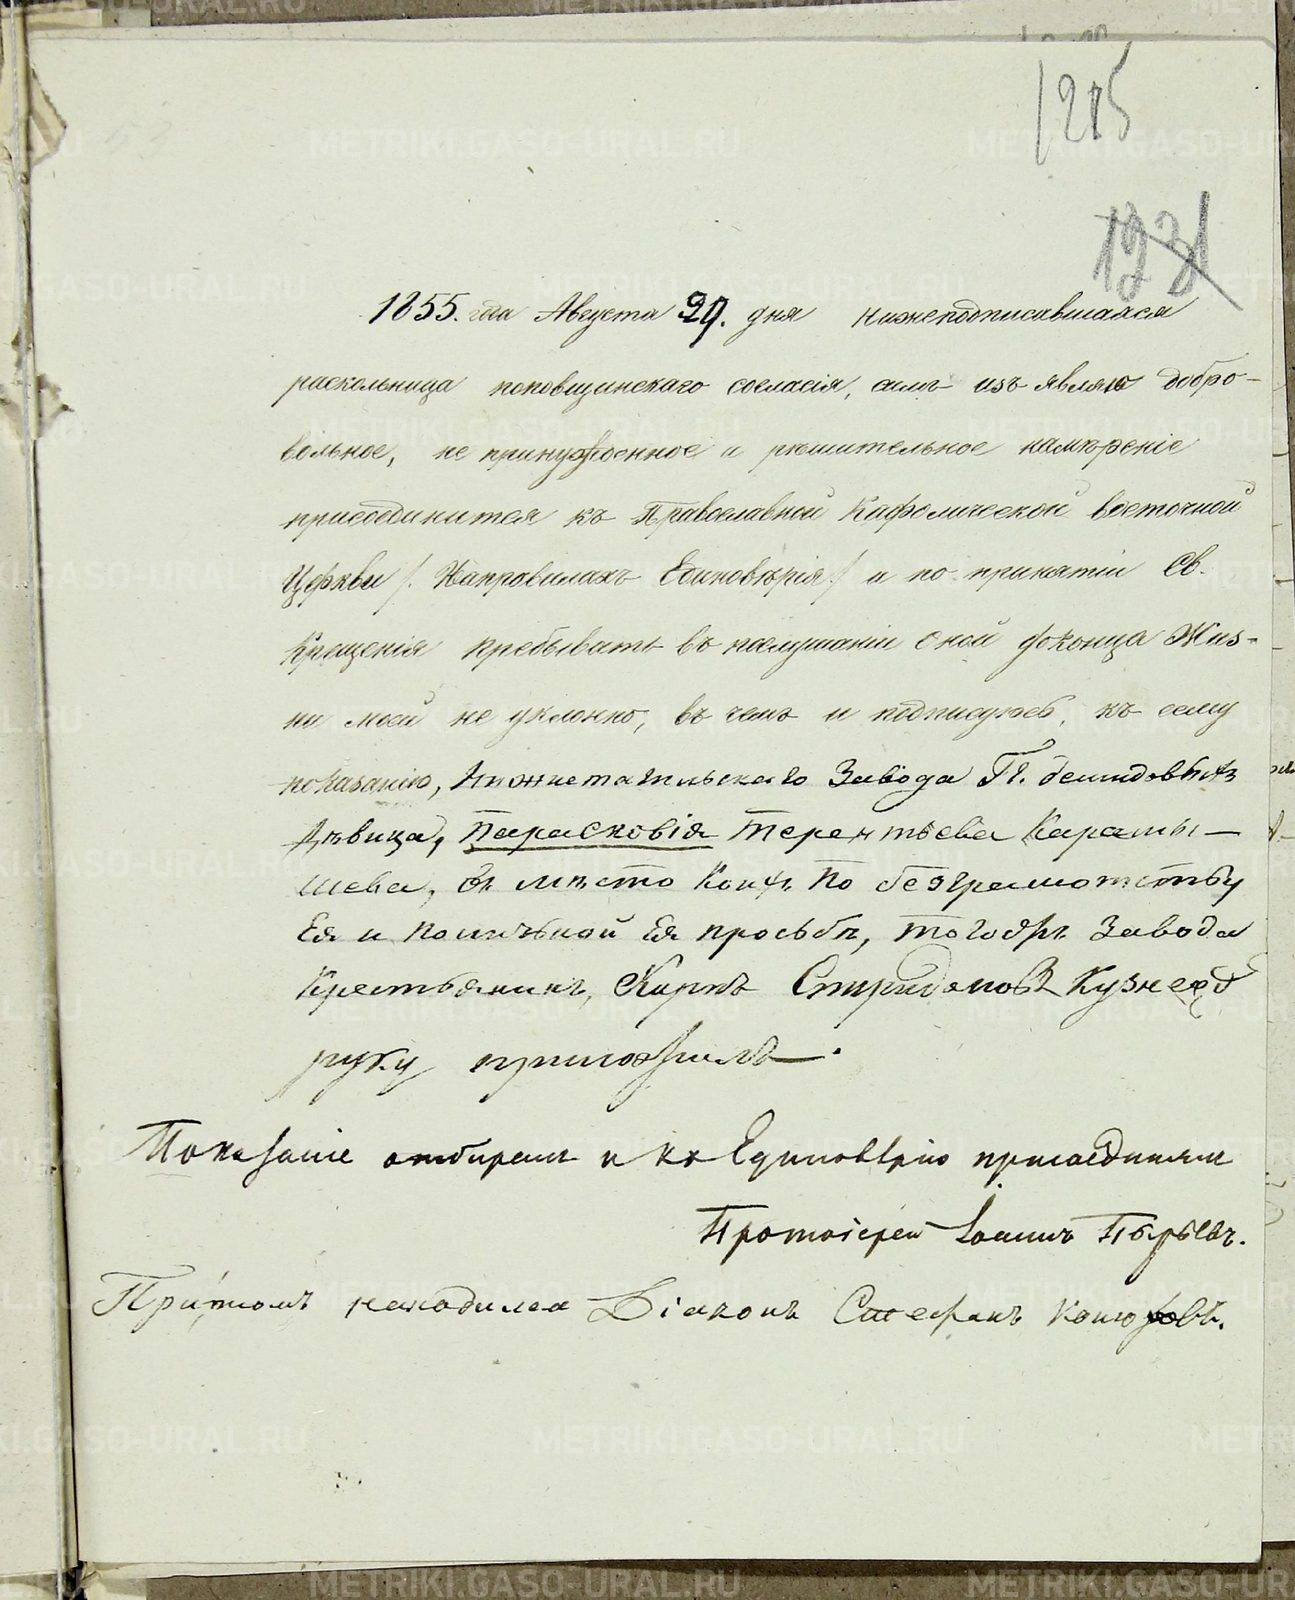 1215
1231
1855. года Августа 29. дня нижеподписавшаяся
раскольница поповщинскаго согласія, симъ изъ являю добро-
вольное, не принужденное и рѣшительное намѣреніе
присоединится къ Православной Кафолической восточной
Церкви /. На правилахъ Единовѣрія ./ и по принятіи Св.
Крещенія пребывать въ послушаніи оной до конца Жиз-
ни моей не уклонно, въ чемъ и подписуюсь, къ сему
показанію, Нижнетагильскаго Завода Гг. демидовыхъ
дѣвица, Парасковія Терентьева Карамы-
шева, въ мѣсто Коей по безграмотству
Ея и по личьной Ея прозьбѣ, тогожъ Завода
Крестьянинъ, Карпъ Спиридоновъ Кузнецов
руку приложилъ.
Показаніе отбиралъ и къ Единовѣрію присоединялъ
Протоіерей Іоаннъ Пырьевъ.
При томъ находился Діаконъ Стефанъ Конюховъ.
METRIKI.GASO-URAL.RU